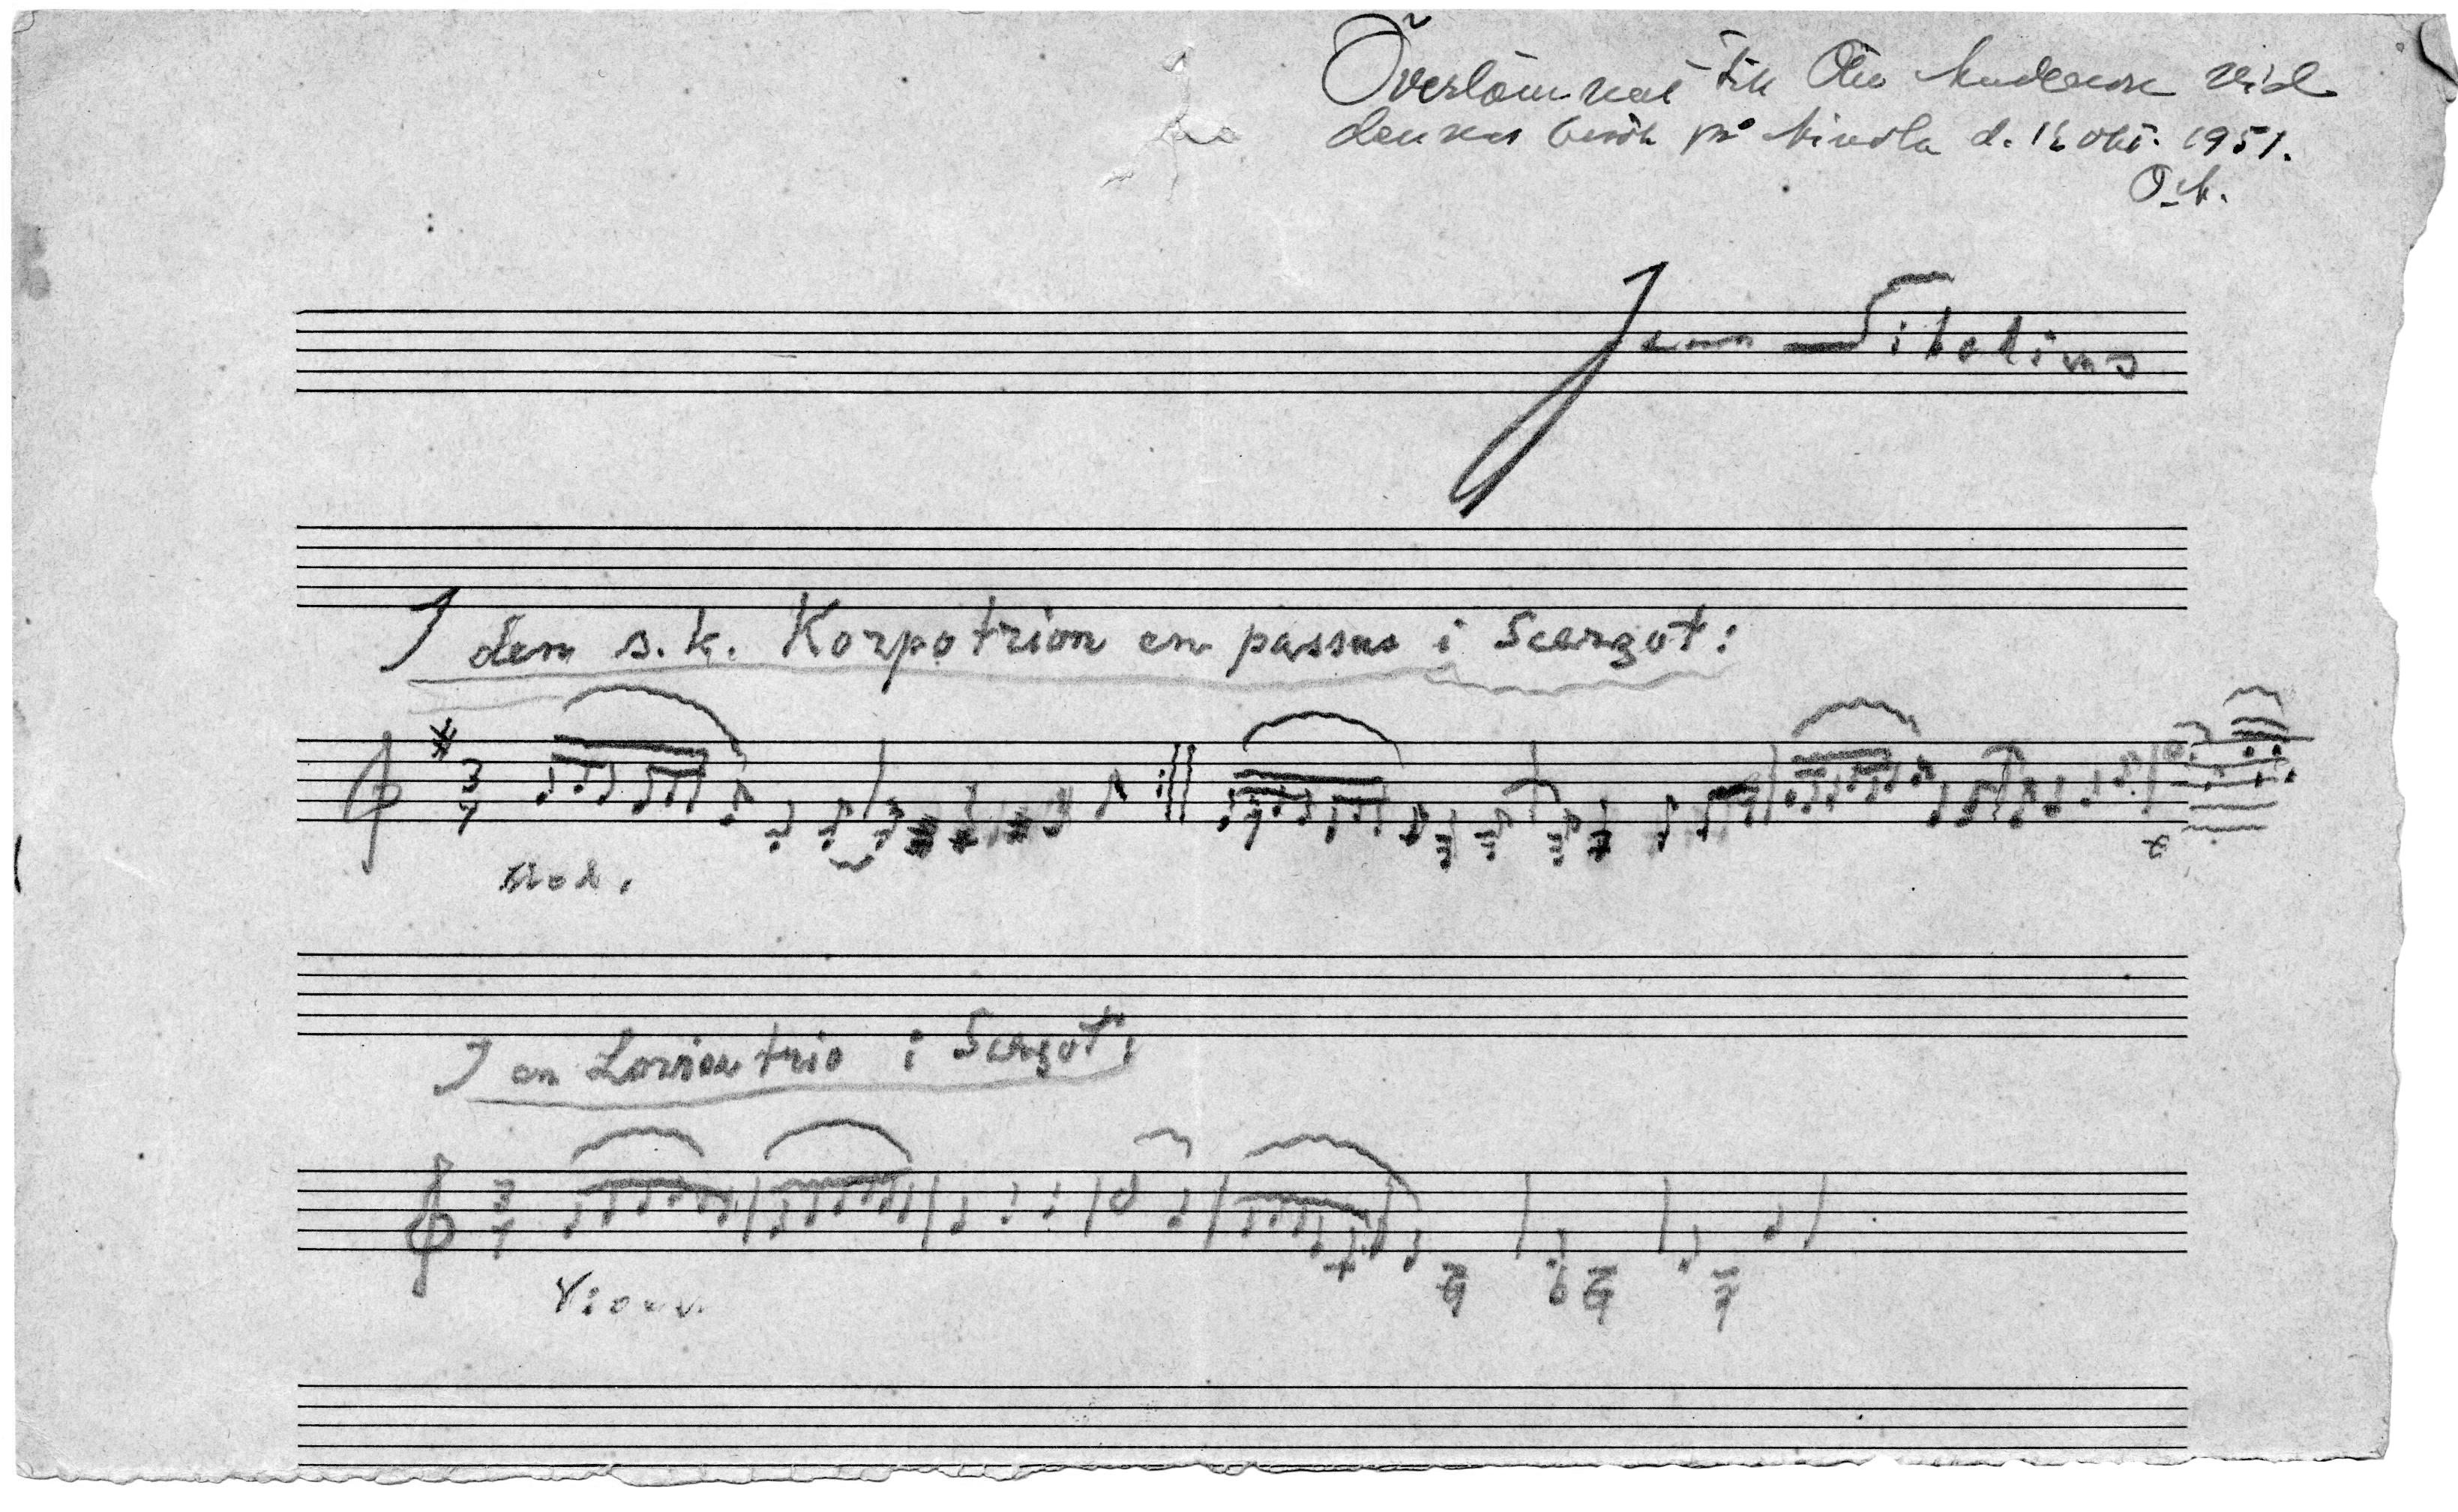 Överlämnat till Otto Andersson vid
dennes besök på Ainola d. 12 okt. 1951.
O.A.
Jean Sibelius
I dem s.k. Korpotrion en passus i Scerzot:
3
4
Mod.
I en Lovisatrio i Scerzot:
3
4
Vivace.